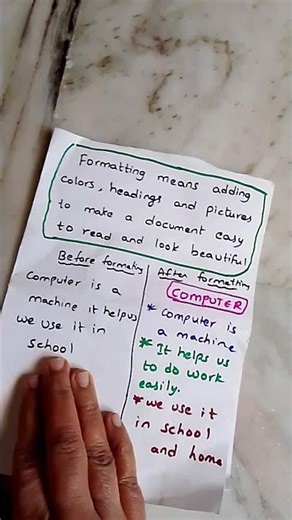 Formatting means adding
colors, headings and pictures
to make a document easy
to read and look beautiful
Before formating
Computer is a
machine it helpus
we use it in
school
After formatting
COMPUTER
* Computer is
a machine
* It helps us
to do work
easily.
* we use it
in school
and home